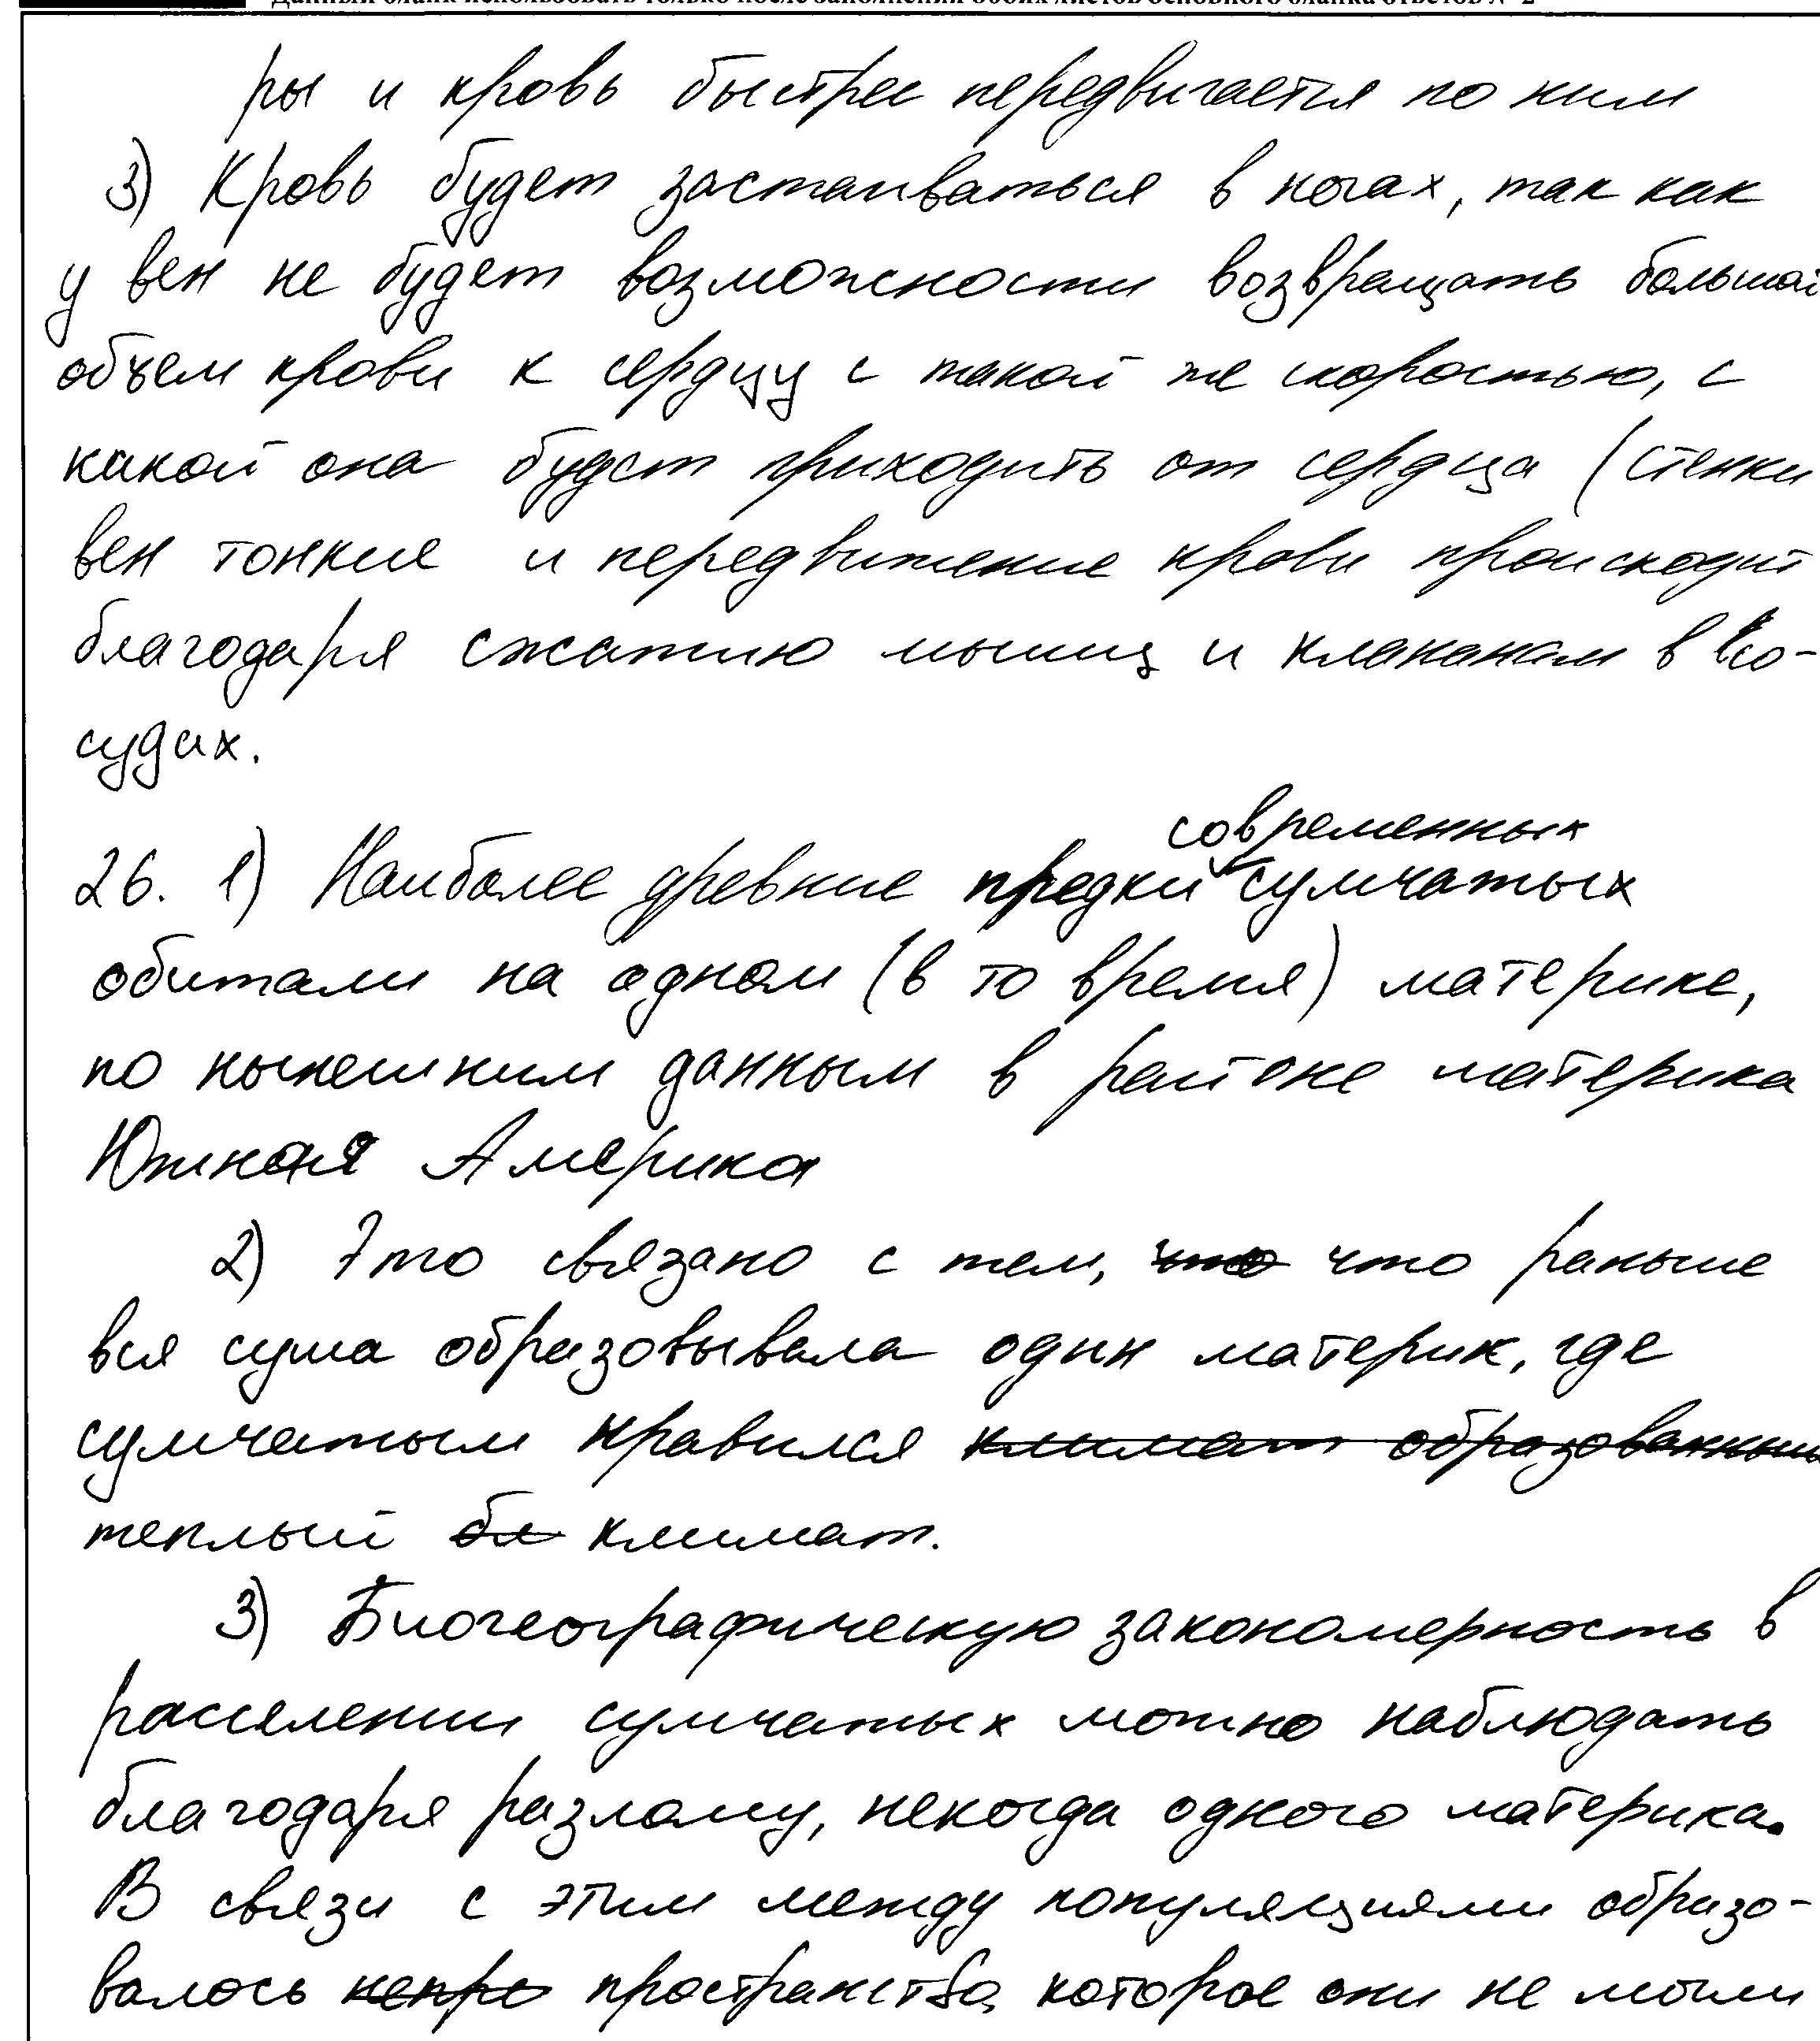 Данный бланк использовать только после заполнения обоих листов основного бланка ответов № 2
ры и кровь быстрее передвигается по ним
3) Кровь будет застаиваться в ногах, так как
у вен не будет возможности возвращать большой
объем крови к сердцу с такой же скоростью, с
какой она будет приходить от сердца (стенки
вен тонкие и передвижение крови происходит
благодаря сжатию мышц и клапанам в со-
судах.
современных
26. 1) Наиболее древние предки сумчатых
обитали на одном (в то время) материке,
по нынешним данным в районе материка
Южная Америка
2) Это связано с тем, что что раньше
вся суша образовывала один материк, где
сумчатым нравился климат образованный
теплый бл климат.
3) Биогеографическую закономерность в
расселении сумчатых можно наблюдать
благодаря разлому, некогда одного материка.
В связи с этим между популяциями образо-
валось непро пространство, которое они не могли